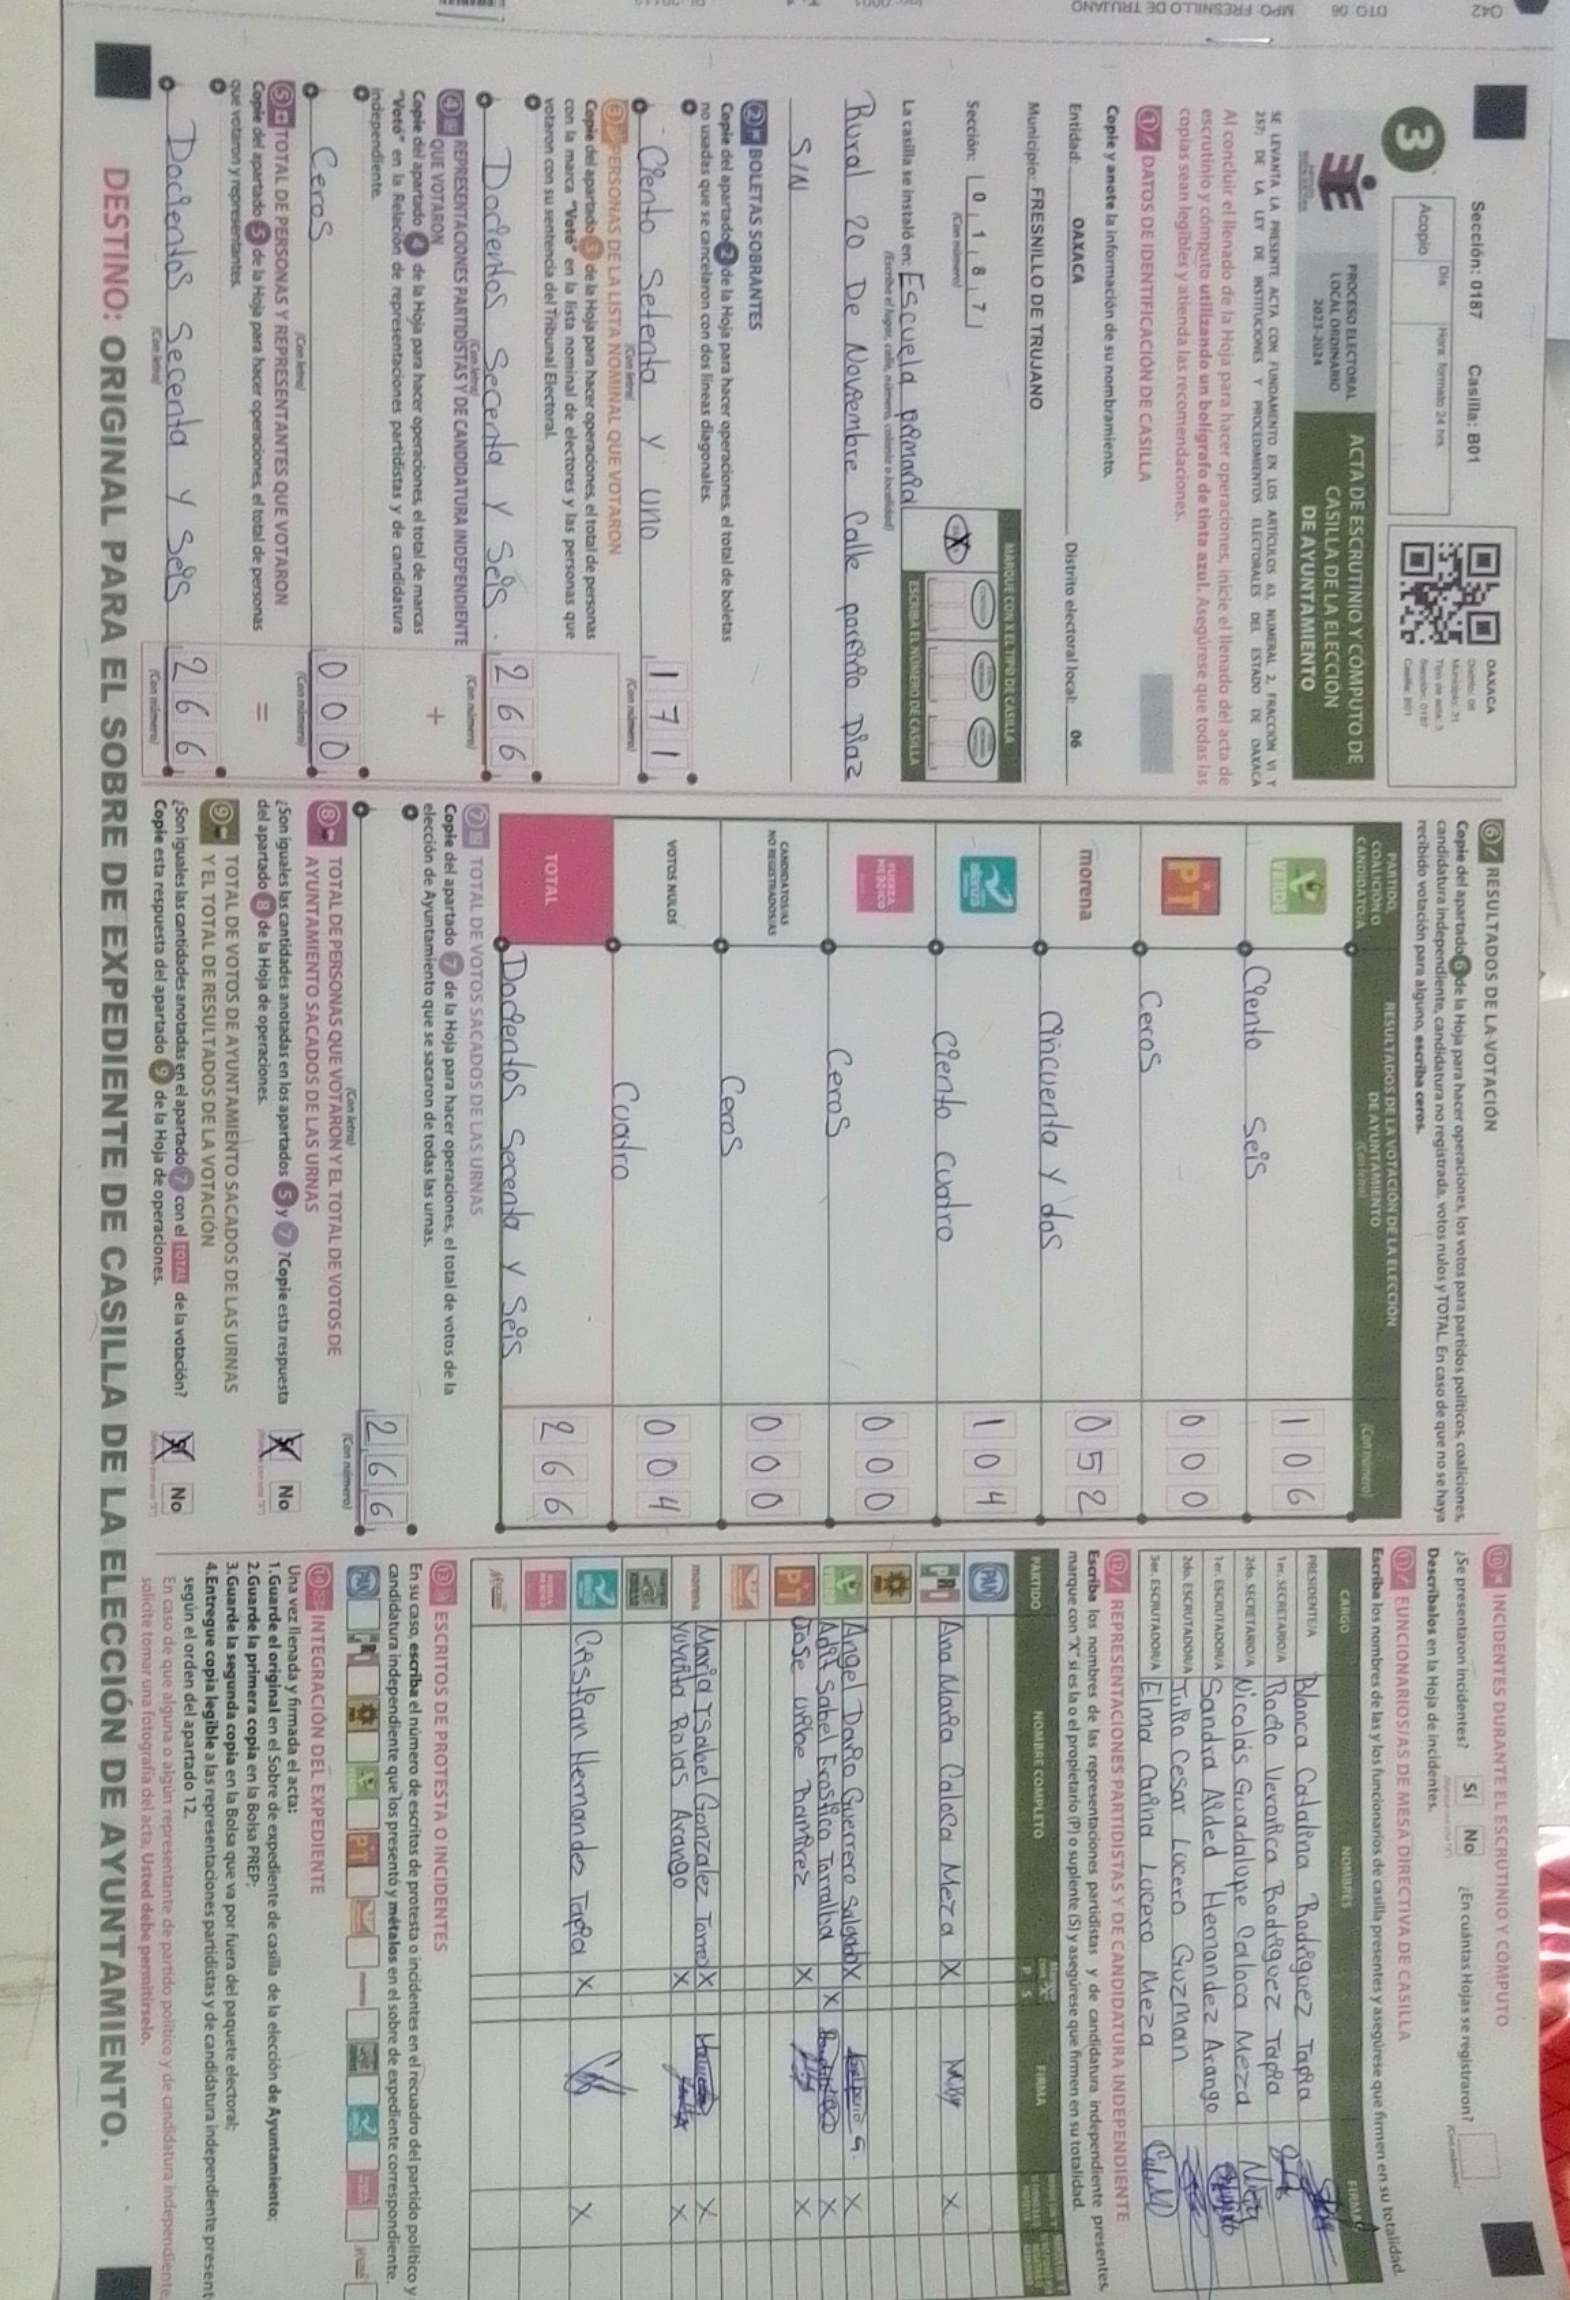 Sección: 0187 Casilla: B01
Día Hora: formato 24 hrs.
Acopio
OAXACA
3
PROCESO ELECTORAL
LOCAL ORDINARIO
2023-2024
ACTA DE ESCRUTINIO Y CÓMPUTO DE
CASILLA DE LA ELECCIÓN
DE AYUNTAMIENTO
SE LEVANTA LA PRESENTE ACTA CON FUNDAMENTO EN LOS ARTÍCULOS 63, NUMERAL 2, FRACCIÓN VI Y
257; DE LA LEY DE INSTITUCIONES Y PROCEDIMIENTOS ELECTORALES DEL ESTADO DE OAXACA
Al concluir el llenado de la Hoja para hacer operaciones, inicie el llenado del acta de
escrutinio y cómputo utilizando un bolígrafo de tinta azul. Asegúrese que todas las
copias sean legibles y atienda las recomendaciones.
1 DATOS DE IDENTIFICACIÓN DE CASILLA
Copie y anote la información de su nombramiento.
Entidad: OAXACA Distrito electoral local: 06
Municipio: FRESNILLO DE TRUJANO
Sección: 0 1 8 7
(Con número)
MARQUE CON X EL TIPO DE CASILLA
X
ESCRIBA EL NÚMERO DE CASILLA
La casilla se instaló en: Escuela primaria
(Escriba el lugar, calle, número, colonia o localidad)
Rural 20 De Noviembre Calle porfirio Diaz
S/N
2 BOLETAS SOBRANTES
Copie del apartado 2 de la Hoja para hacer operaciones, el total de boletas
no usadas que se cancelaron con dos líneas diagonales.
Ciento Setenta y uno 1 7 1
(Con letra) (Con número)
3 PERSONAS DE LA LISTA NOMINAL QUE VOTARON
Copie del apartado 3 de la Hoja para hacer operaciones, el total de personas
con la marca "Votó" en la lista nominal de electores y las personas que
votaron con su sentencia del Tribunal Electoral.
Docientos Secenta y Seis. 2 6 6
(Con letra) (Con número)
4 REPRESENTACIONES PARTIDISTAS Y DE CANDIDATURA INDEPENDIENTE
QUE VOTARON
+
Copie del apartado 4 de la Hoja para hacer operaciones, el total de marcas
"Votó" en la Relación de representaciones partidistas y de candidatura
independiente.
Ceros 0 0 0
(Con letra) (Con número)
5 TOTAL DE PERSONAS Y REPRESENTANTES QUE VOTARON
=
Copie del apartado 5 de la Hoja para hacer operaciones, el total de personas
que votaron y representantes.
Docientos Secenta y Seis 2 6 6
(Con letra) (Con número)
6 RESULTADOS DE LA VOTACIÓN
Copie del apartado 6 de la Hoja para hacer operaciones, los votos para partidos políticos, coaliciones,
candidatura independiente, candidatura no registrada, votos nulos y TOTAL. En caso de que no se haya
recibido votación para alguno, escriba ceros.
PARTIDO,
COALICIÓN O
CANDIDATO/A
RESULTADOS DE LA VOTACIÓN DE LA ELECCIÓN
DE AYUNTAMIENTO
(Con letra) (Con número)
VERDE Ciento Seis 1 0 6
PT Ceros 0 0 0
morena Cincuenta y dos 0 5 2
Ciento cuatro 1 0 4
FUERZA MÉXICO Ceros 0 0 0
CANDIDATOS/AS
NO REGISTRADOS/AS
Ceros 0 0 0
VOTOS NULOS Cuatro 0 0 4
TOTAL Docientos Secenta y Seis 2 6 6
7 TOTAL DE VOTOS SACADOS DE LAS URNAS
Copie del apartado 7 de la Hoja para hacer operaciones, el total de votos de la
elección de Ayuntamiento que se sacaron de todas las urnas.
2 6 6
(Con letra) (Con número)
8 TOTAL DE PERSONAS QUE VOTARON Y EL TOTAL DE VOTOS DE
AYUNTAMIENTO SACADOS DE LAS URNAS
¿Son iguales las cantidades anotadas en los apartados 5 y 7 ?Copie esta respuesta
del apartado 8 de la Hoja de operaciones.
Sí X No
9 TOTAL DE VOTOS DE AYUNTAMIENTO SACADOS DE LAS URNAS
Y EL TOTAL DE RESULTADOS DE LA VOTACIÓN
¿Son iguales las cantidades anotadas en el apartado 7 con el TOTAL de la votación?
Copie esta respuesta del apartado 9 de la Hoja de operaciones.
Sí X No
10 INCIDENTES DURANTE EL ESCRUTINIO Y CÓMPUTO
¿Se presentaron incidentes? Sí No ¿En cuántas Hojas se registraron?
Descríbalos en la Hoja de incidentes.
11 FUNCIONARIOS/AS DE MESA DIRECTIVA DE CASILLA
Escriba los nombres de las y los funcionarios de casilla presentes y asegúrese que firmen en su totalidad.
CARGO NOMBRES FIRMA
PRESIDENTE/A Blanca Catalina Rodriguez Tapia
1er. SECRETARIO/A Rocio Veronica Rodriguez Tapia
2do. SECRETARIO/A Nicolás Guadalupe Caloca Meza
1er. ESCRUTADOR/A Sandra Aided Hernandez Arango
2do. ESCRUTADOR/A Julio Cesar Lucero Guzman
3er. ESCRUTADOR/A Elma Carina Lucero Meza
12 REPRESENTACIONES PARTIDISTAS Y DE CANDIDATURA INDEPENDIENTE
Escriba los nombres de las representaciones partidistas y de candidatura independiente presentes,
marque con "X" si es la o el propietario (P) o suplente (S) y asegúrese que firmen en su totalidad.
PARTIDO NOMBRE COMPLETO P S FIRMA
PAN
PRI Ana Maria Caloca Meza X X
Angel Dario Guerrero Salgado X X
Adit Sabel Erostico Tarralba X X
PT Jose Uribe Ramirez X X
morena Maria Isabel Gonzalez Torres X X
Yurita Rojas Arango X X
Cristian Hernandez Tapia X X
13 ESCRITOS DE PROTESTA O INCIDENTES
En su caso, escriba el número de escritos de protesta o incidentes en el recuadro del partido político y
candidatura independiente que los presentó y métalos en el sobre de expediente correspondiente.
PAN PRI PT
INTEGRACIÓN DEL EXPEDIENTE
Una vez llenada y firmada el acta:
1.Guarde el original en el Sobre de expediente de casilla de la elección de Ayuntamiento;
2.Guarde la primera copia en la Bolsa PREP;
3.Guarde la segunda copia en la Bolsa que va por fuera del paquete electoral;
4.Entregue copia legible a las representaciones partidistas y de candidatura independiente present
según el orden del apartado 12.
En caso de que alguna o algún representante de partido político y de candidatura independiente,
solicite tomar una fotografía del acta, Usted debe permitírselo.
DESTINO: ORIGINAL PARA EL SOBRE DE EXPEDIENTE DE CASILLA DE LA ELECCIÓN DE AYUNTAMIENTO.